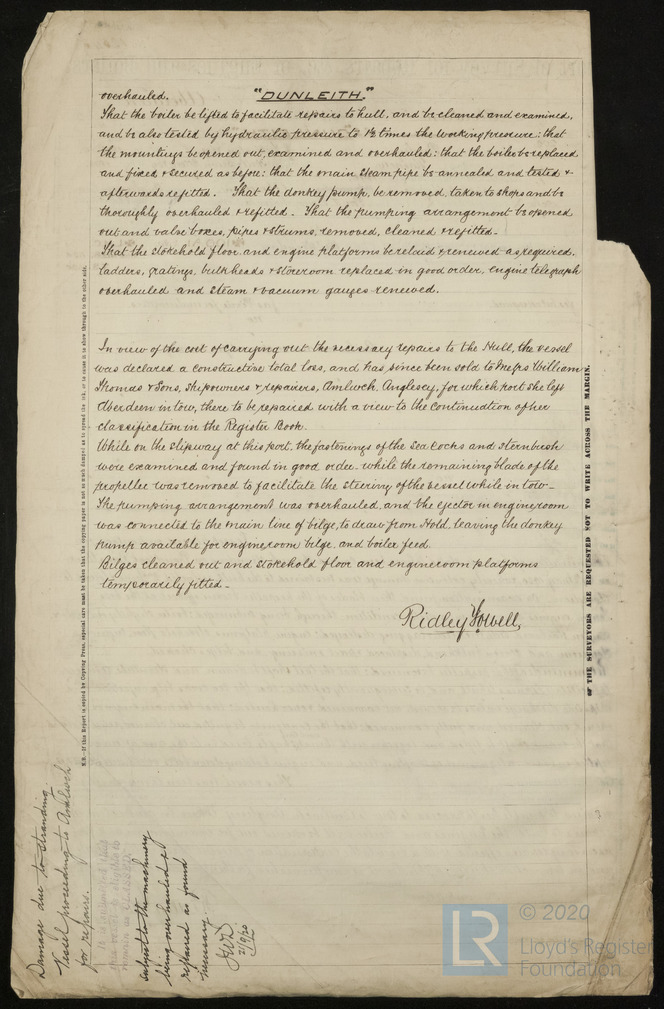 overhauled. "DUNLEITH."
That the boiler be lifted to facilitate repairs to hull, and be cleaned and examined,
and be also tested by hydraulic pressure to 1½ times the working pressure: that
the mountings be opened out, examined and overhauled: that the boiler be replaced
and fixed & secured as before: that the main steam pipe be annealed and tested &
afterwards refitted. That the donkey pump, be removed, taken to shops and be
thoroughly overhauled & refitted. That the pumping arrangement be opened
out and valve boxes, pipes & strums, removed, cleaned & refitted.
That the stokehold floor and engine platforms be relaid & renewed as required.
ladders, gratings, bulkheads & storeroom replaced in good order, engine telegraph
overhauled and steam & vacuum gauges renewed.
In view of the cost of carrying out the necessary repairs to the Hull, the vessel
was declared a constructive total loss, and has since been sold to Messrs William
Thomas & Sons, shipowners & repairers, Amlwch, Anglesey, for which port she left
Aberdeen in tow, there to be repaired with a view to the continuation of her
classification in the Register Book.
While on the slipway at this port, the fastenings of the sea cocks and sternbush
were examined and found in good order. While the remaining blade of the
propeller was removed to facilitate the steering of the vessel while in tow.
The pumping arrangement was overhauled, and the ejector in engineroom
was connected to the main line of bilge, to draw from Hold, leaving the donkey
pump available for engineroom bilge, and boiler feed.
Bilges cleaned out and stokehold floor and engineroom platforms
temporarily fitted.
Ridley Powell
Damage due to stranding
Vessel proceeding to Amlwch
for repairs.
Subject to the machinery
being overhauled &
repaired as found
necessary
21/9/20
N.B.—If this Report is copied by Copying Press, especial care must be taken that the copying paper is not so much damped as to spread the ink, or to cause it to show through to the other side.
OF THE SURVEYORS ARE REQUESTED NOT TO WRITE ACROSS THE MARGIN.
LR
© 2020
Lloyd's Register
Foundation